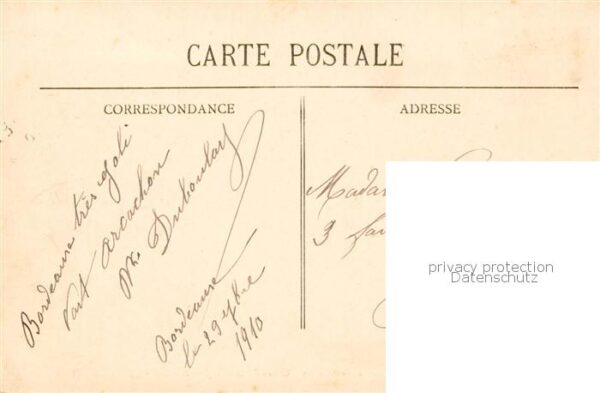 CARTE POSTALE
CORRESPONDANCE
ADRESSE
Bordeaux très joli
vaut Arcachon
Duboulay
Bordeaux
le 29 7bre
1910
Mada
3
privacy protection
Datenschutz